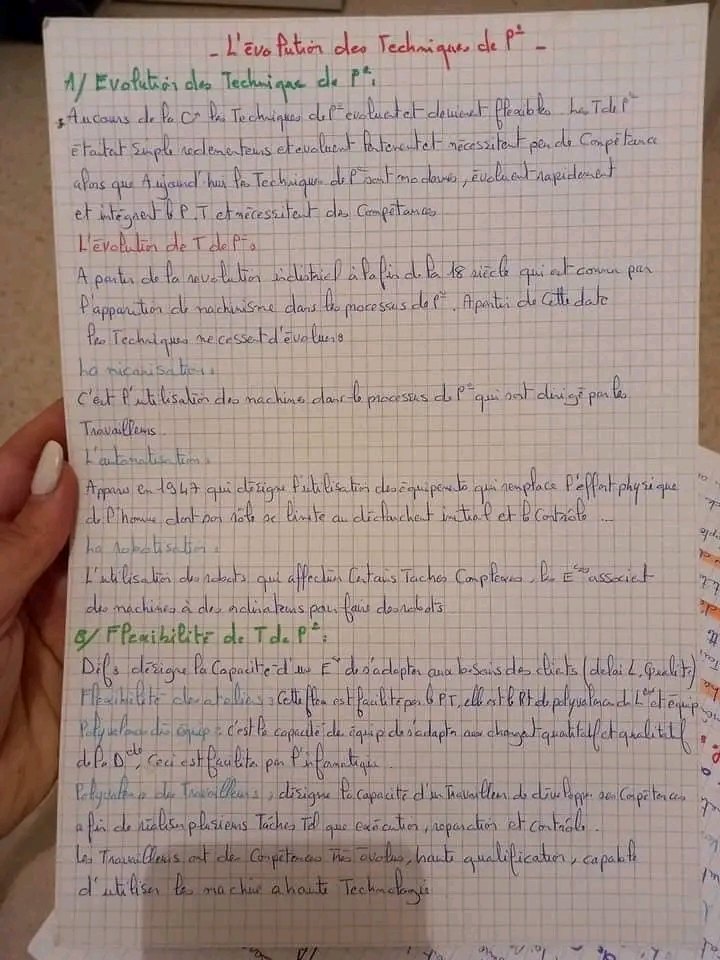 - L'évolution des Techniques de P² -
A/ Evolution des Technique de P² :
Au cours de la les Techniques de P² evoluent et devient flexibles. Les T de P²
était simple et évoluent lentement et nécessitent peu de Compétence
alors que Aujourd'hui les Techniques de P² sont modernes, évoluent rapidement
et intégrent le P.T et nécessitent des Compétances
L'évolution de T de P² :
A partir de la revolution industriel à la fin de la 18 siècle qui est connu par
l'apparution de machinisme dans les processus de P². A partir de Cette date
les Techniques ne cessent d'évoluer
La micanisation :
C'est l'utilisation des machines dans le processus de P² qui sont dirigé par les
Travailleurs.
L'automatisation :
Apparu en 1947 qui désigne l'utilisation des équipements qui remplace l'effort physique
de l'homme dont son rôle se limite au initial et le Contrôle ...
La robotisation :
L'utilisation des robots qui Certais Taches Complexes, les E^ses associent
des machines à des ordinateurs pour faire des robots
B/ Flexibilité de T de P² :
Déf : désigne la Capacité d'une E^se de s'adapter aux besoins des clients (delai L, Qualité)
Flexibilité des ateliers : Cette flex est facilité par le PT, elle est le Rt de polyvalence de L et équip
Polyvalence des équip : c'est la capacité des équip de s'adapter aux changt qualitatif et qualitatif
de la Dde, Ceci est facilité par l'informatique.
Polyvalence des Travailleurs : désigne la capacité d'un Travailleur de développer ses Compétences
afin de réaliser plusieurs Tâches Tel que exécution, reparation et contrôle.
Les Travailleurs ont des Compétences Très évolués, haute qualification, capable
d'utiliser les machine à haute Technologie